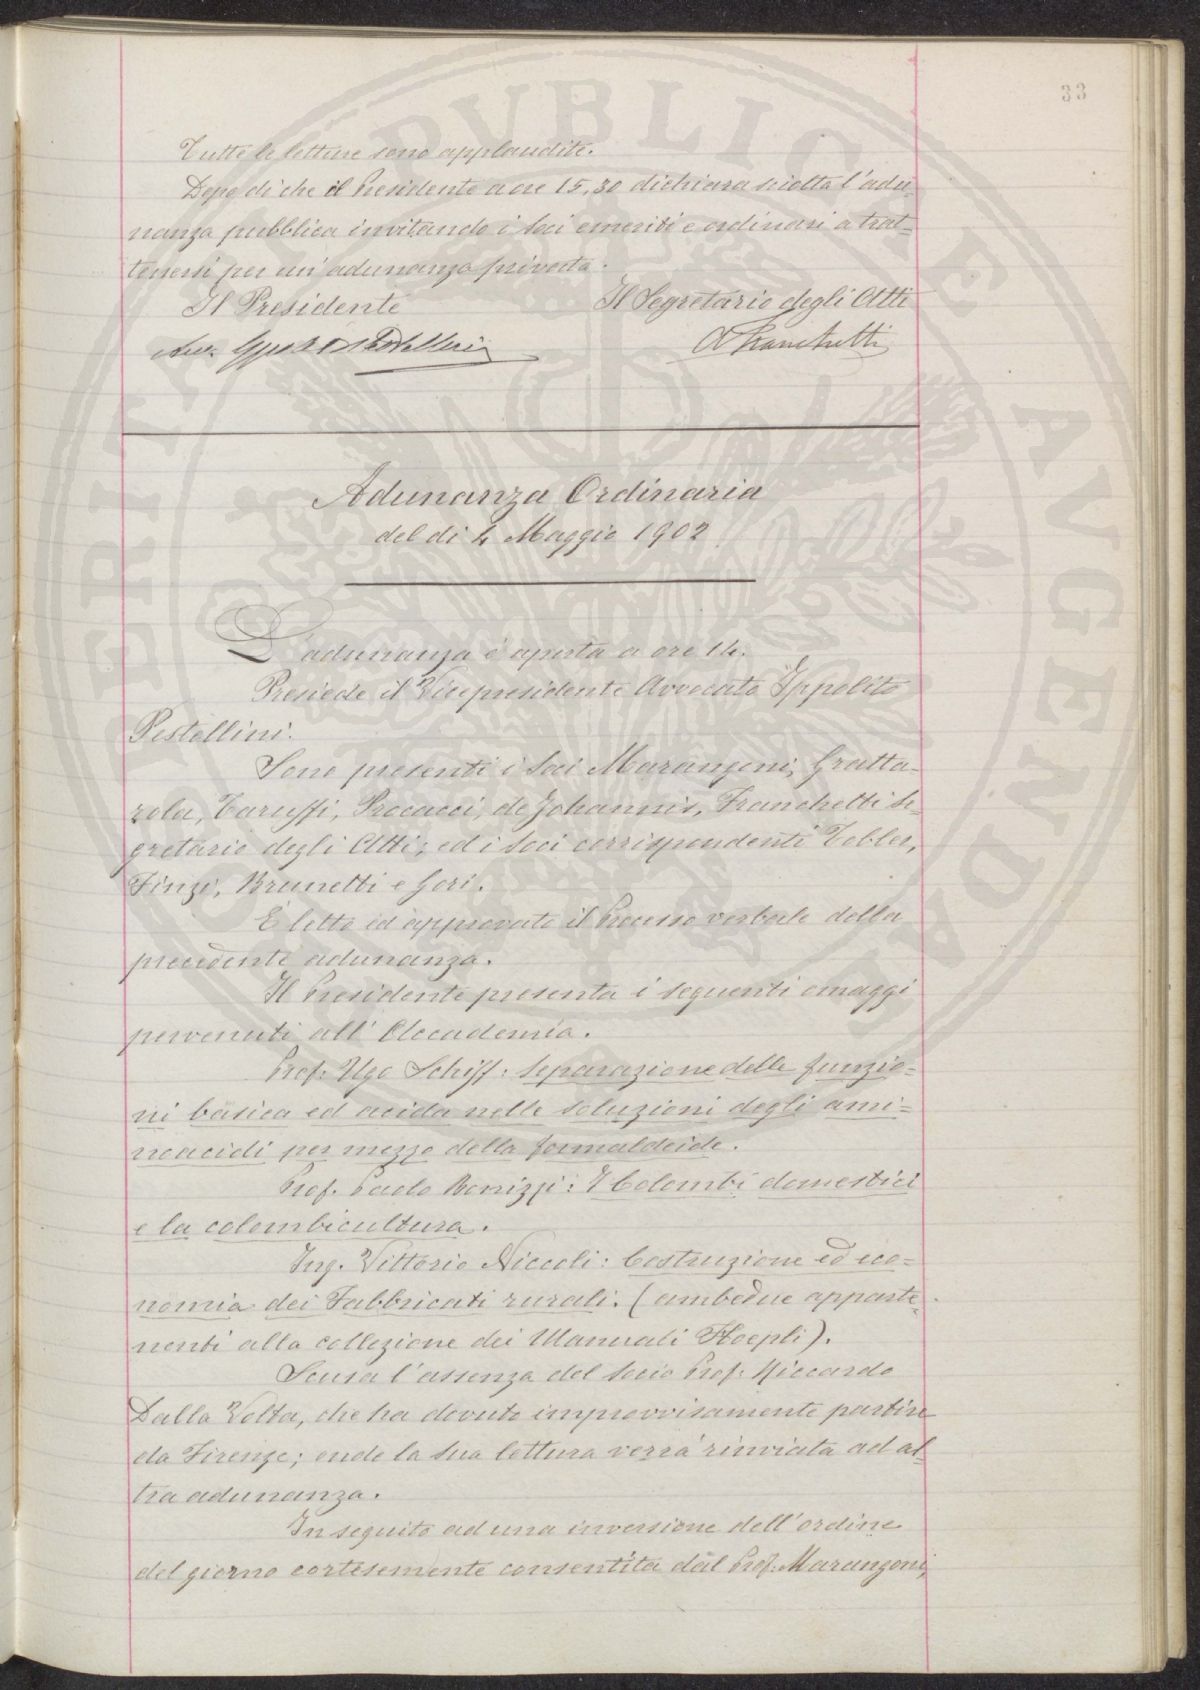 33
Tutte le letture sono applaudite.
Dopo di che il Presidente a ore 15,30 dichiara sciolta l'adu-
nanza pubblica invitando i Soci emeriti e ordinari a trat-
tenersi per un'adunanza privata.
Il Presidente Il Segretario degli Atti
Avv. Ippolito Pestellini A Franchetti
Adunanza Ordinaria
del dì 4 Maggio 1902
L'adunanza è aperta a ore 14.
Presiede il Vicepresidente Avvocato Ippolito
Pestellini.
Sono presenti i Soci Marangoni, Gratta-
rola, Taruffi, Procacci, de Johannis, Franchetti Se-
gretario degli Atti; ed i Soci corrispondenti Tobler,
Finzi, Brunetti e Gori.
È letto ed approvato il Processo verbale della
precedente adunanza.
Il Presidente presenta i seguenti omaggi
pervenuti all'Accademia.
Prof. Ugo Schiff: Separazione delle funzio=
ni basica ed acida nelle soluzioni degli ami=
noacidi per mezzo della formaldeide.
Prof. Paolo Bonizzi: I Colombi domestici
e la colombicultura.
Ing. Vittorio Niccoli: Costruzione ed eco=
nomia dei Fabbricati rurali. (ambedue apparte=
nenti alla collezione dei Manuali Hoepli).
Scusa l'assenza del Socio Prof. Riccardo
Dalla Volta, che ha dovuto improvvisamente partire
da Firenze; onde la sua lettura verrà rinviata ad al-
tra adunanza.
In seguito ad una inversione dell'ordine
del giorno cortesemente consentita dal Prof. Marangoni,
PROSPERITATI PVBLICAE AVGENDAE